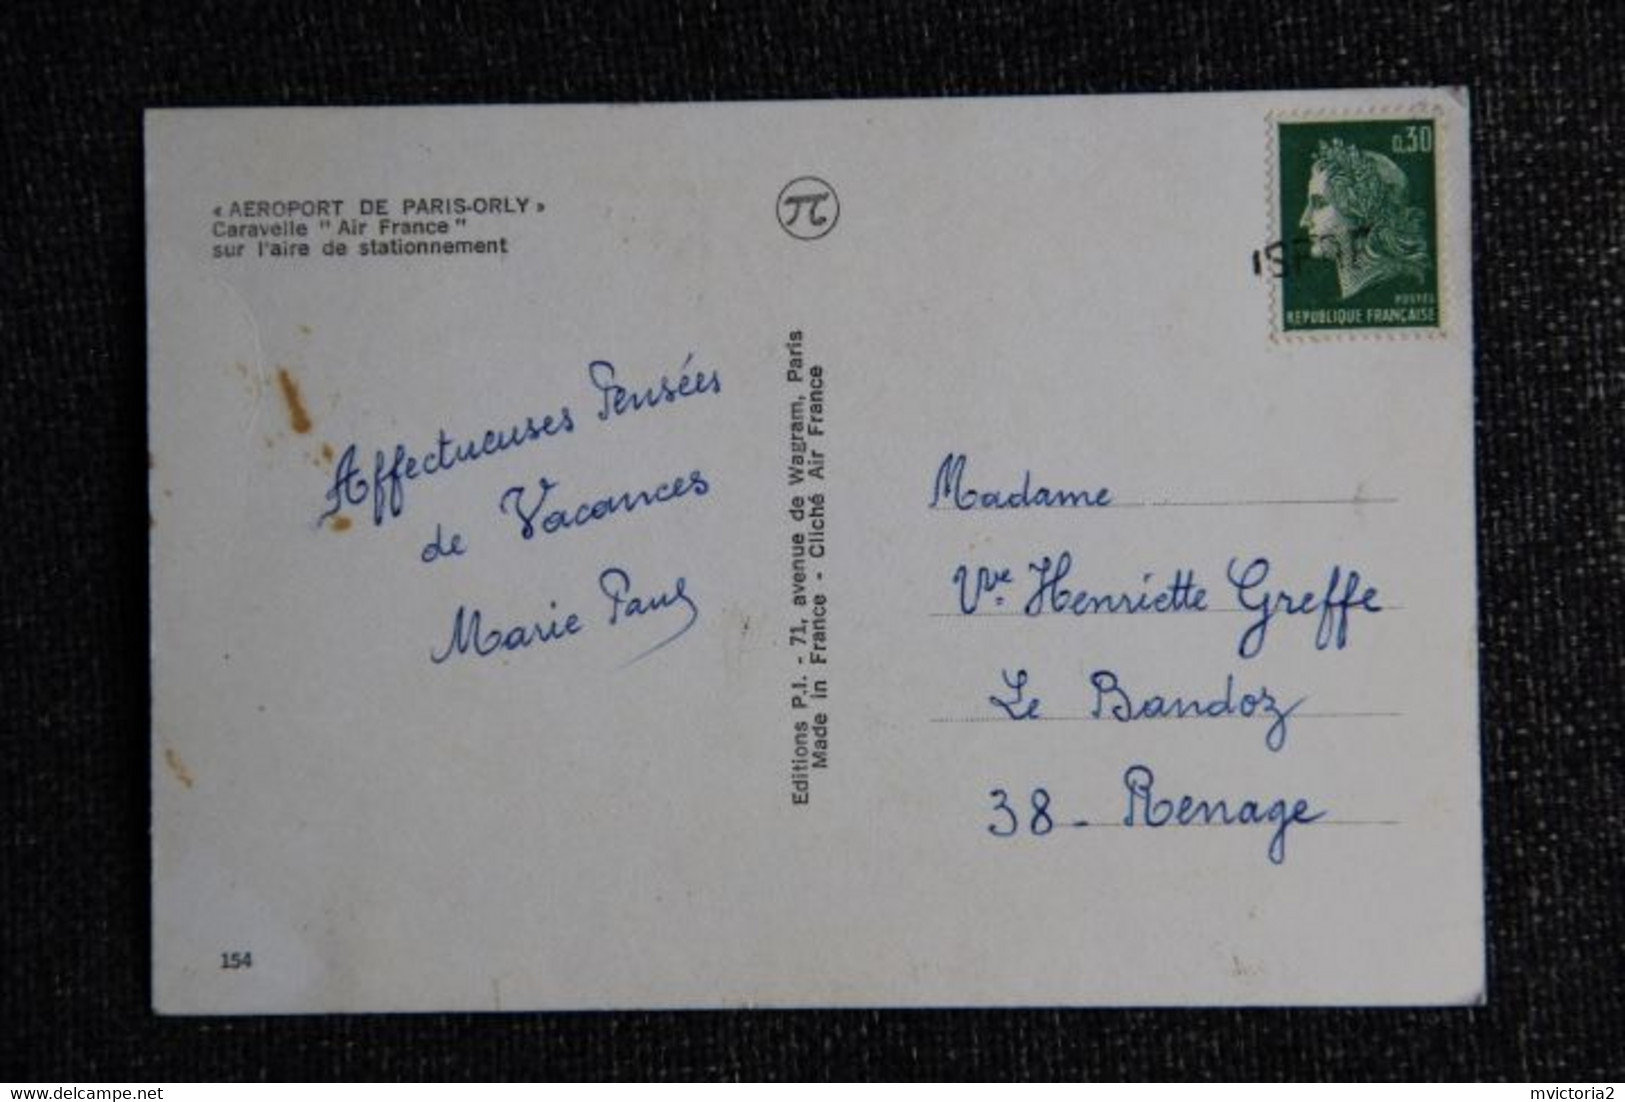 « AEROPORT DE PARIS-ORLY »
Caravelle " Air France "
sur l'aire de stationnement
Affectueuses Pensées
de Vacances
Marie Paul
154
Editions P.I. - 71, avenue de Wagram, Paris
Made in France - Cliché Air France
0,30
POSTES
REPUBLIQUE FRANÇAISE
Madame
Vve Henriette Greffe
Le Bandoz
38 - Renage
mvictoria2